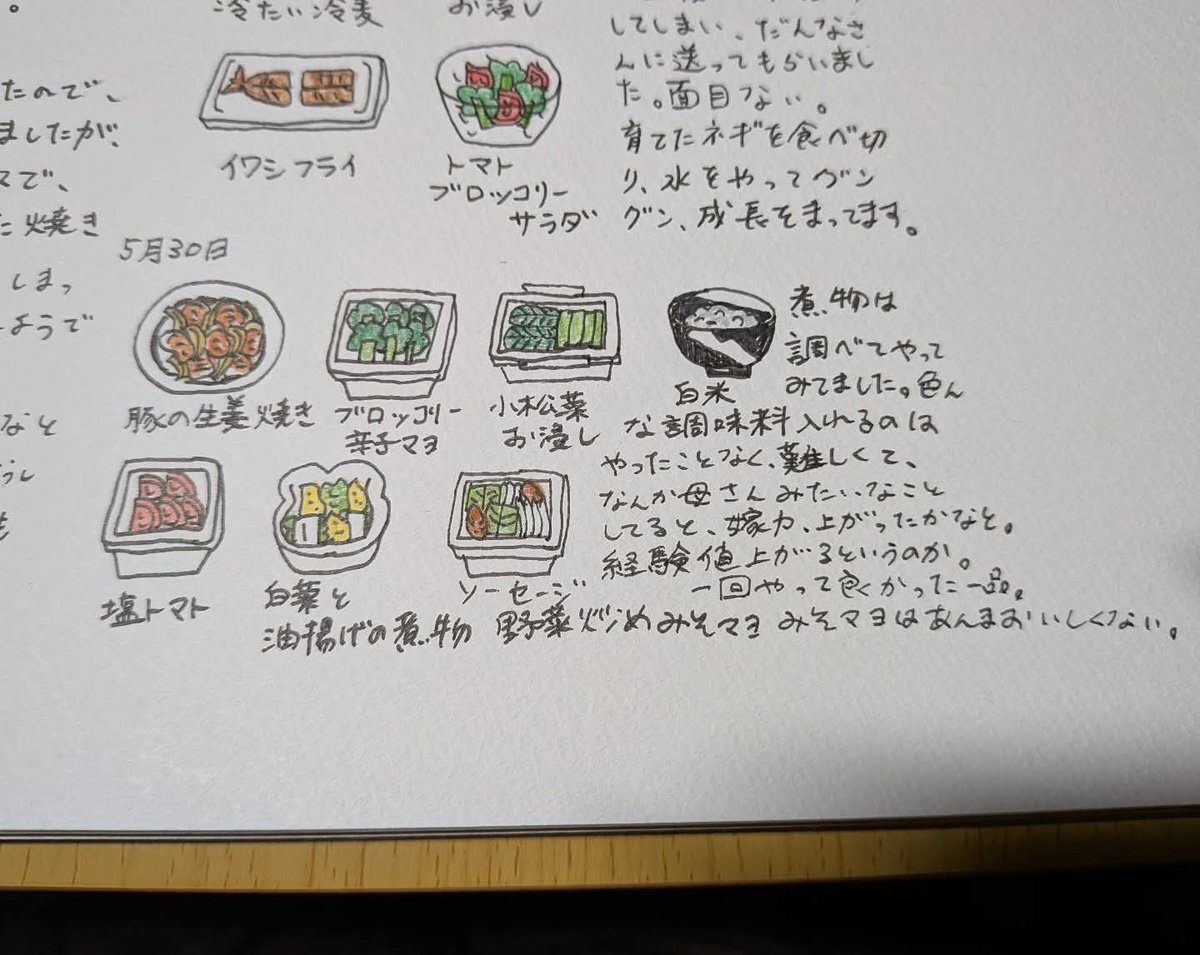 冷たい冷麦
お浸し
たので、
ましたが、
で、
た焼き
しまっ
ようで
なと
イワシフライ
トマト
ブロッコリー
サラダ
してしまい、だんなさ
んに送ってもらいまし
た。面目ない。
育てたネギを食べ切
り、水をやってグン
グン、成長をまってます。
5月30日
豚の生姜焼き
ブロッコリー
辛子マヨ
小松菜
お浸し
白米
塩トマト
白菜と
油揚げの煮物
ソーセージ
野菜炒めみそマヨ
煮物は
調べてやって
みてました。色ん
な調味料入れるのは
やったことなく、難しくて、
なんか母さんみたいなこと
してると、嫁力、上がったかなと。
経験値上がるというのか。
一回やって良かった一品。
みそマヨはあんまおいしくない。